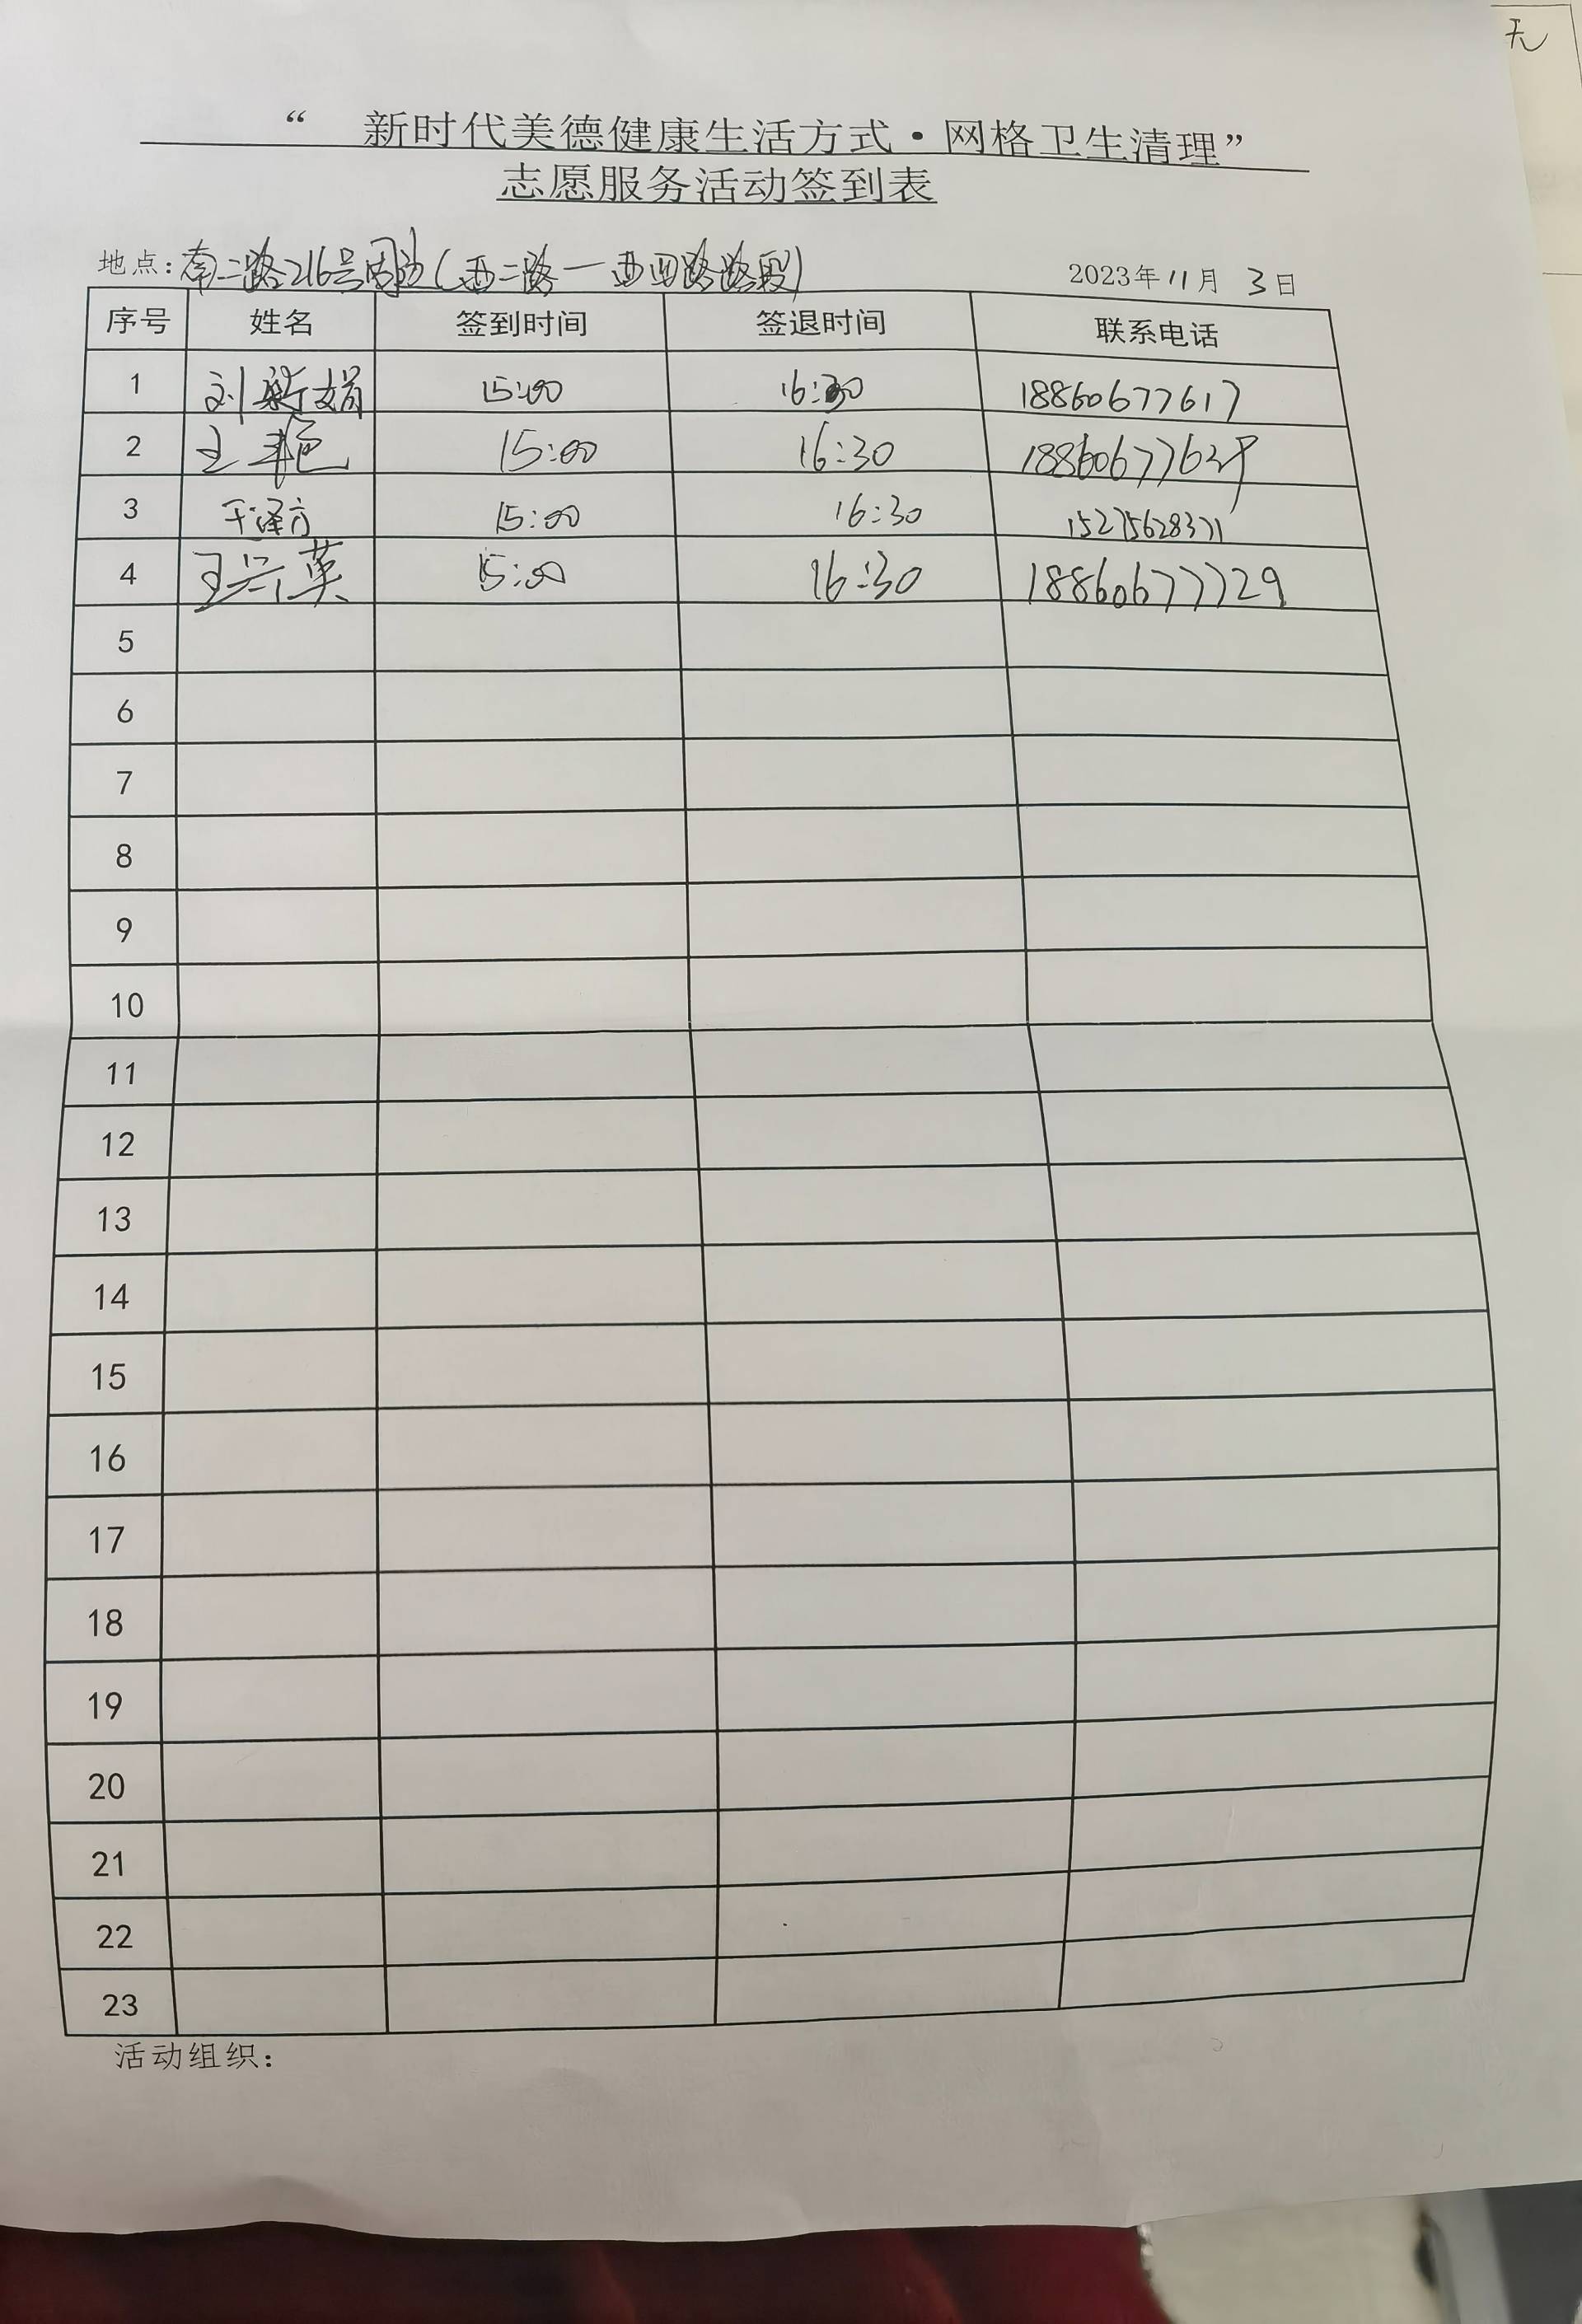 无
“ 新时代美德健康生活方式·网格卫生清理”
志愿服务活动签到表
地点：南二路216号周边（西二路一西四路路段） 2023年11月3日
序号 姓名 签到时间 签退时间 联系电话
1 刘新娟 15:00 16:30 18860677617
2 王艳 15:00 16:30
3 于泽方 15:00 16:30 15275628371
4 王兴英 15:00 16:30 18860677729
5
6
7
8
9
10
11
12
13
14
15
16
17
18
19
20
21
22
23
活动组织：